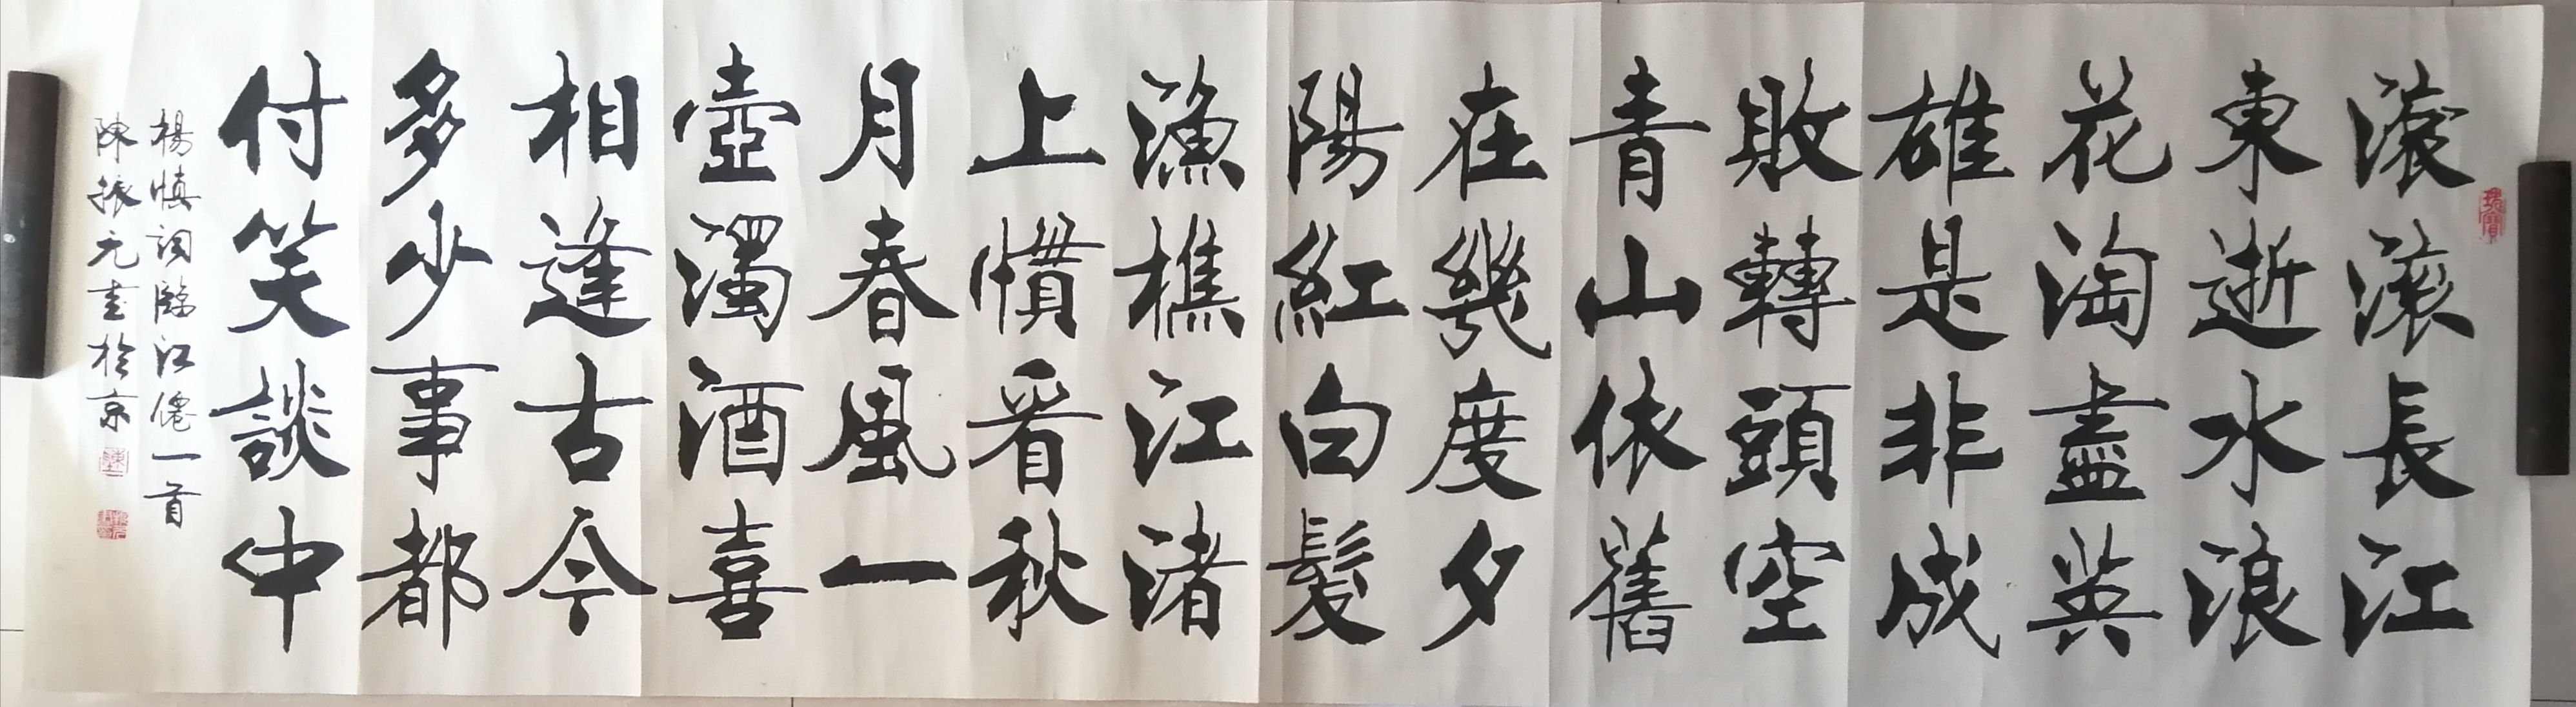 滾滾長江
東逝水浪
花淘盡英
雄是非成
敗轉頭空
青山依舊
在幾度夕
陽紅白髮
漁樵江渚
上慣看秋
月春風一
壺濁酒喜
相逢古今
多少事都
付笑談中
楊慎詞臨江僊一首
陳振元書於京